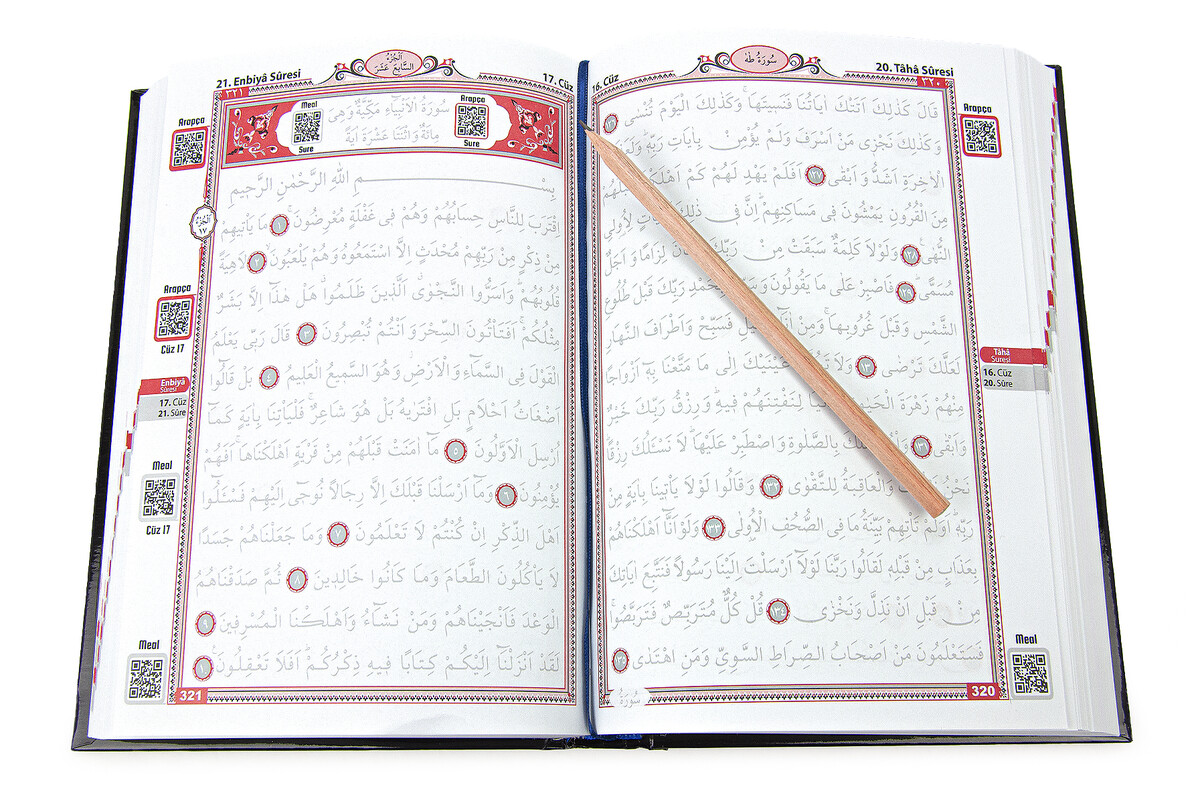 20. Tâhâ Sûresi
سُورَةُ طٰهٰ
16. Cüz
٣٢٠
قَالَ كَذٰلِكَ اَتَتْكَ اٰيَاتُنَا فَنَسٖيتَهَا وَكَذٰلِكَ الْيَوْمَ تُنْسٰى ١٢٦
وَكَذٰلِكَ نَجْزٖى مَنْ اَسْرَفَ وَلَمْ يُؤْمِنْ بِاٰيَاتِ رَبِّهٖ
الْاٰخِرَةِ اَشَدُّ وَاَبْقٰى ١٢٧ اَفَلَمْ يَهْدِ لَهُمْ كَمْ
مِنَ الْقُرُونِ يَمْشُونَ فٖى مَسَاكِنِهِمْ اِنَّ فٖى ذٰلِكَ لِاُولِى
النُّهٰى ١٢٨ وَلَوْلَا كَلِمَةٌ سَبَقَتْ مِنْ رَبِّكَ لِزَامًا وَاَجَلٌ
مُسَمًّى ١٢٩ فَاصْبِرْ عَلٰى مَا يَقُولُونَ رَبِّكَ قَبْلَ طُلُوعِ
الشَّمْسِ وَقَبْلَ غُرُوبِهَا وَمِنْ فَسَبِّحْ وَاَطْرَافَ النَّهَارِ
لَعَلَّكَ تَرْضٰى ١٣٠ وَلَا عَيْنَيْكَ اِلٰى مَا مَتَّعْنَا بِهٖٓ اَزْوَاجًا
مِنْهُمْ زَهْرَةَ لِنَفْتِنَهُمْ فٖيهِ وَرِزْقُ رَبِّكَ خَيْرٌ
وَاَبْقٰى ١٣١ بِالصَّلٰوةِ وَاصْطَبِرْ عَلَيْهَا لَا نَسْـَٔلُكَ رِزْقًا
وَالْعَاقِبَةُ لِلتَّقْوٰى ١٣٢ وَقَالُوا لَوْلَا يَأْتٖينَا بِاٰيَةٍ مِنْ
رَبِّهٖ اَوَلَمْ تَأْتِهِمْ بَيِّنَةُ مَا فِى الصُّحُفِ الْاُولٰى ١٣٣ وَلَوْ اَنَّٓا اَهْلَكْنَاهُمْ
بِعَذَابٍ مِنْ قَبْلِهٖ لَقَالُوا رَبَّنَا لَوْلَٓا اَرْسَلْتَ اِلَيْنَا رَسُولًا فَنَتَّبِعَ اٰيَاتِكَ
مِنْ قَبْلِ اَنْ نَذِلَّ وَنَخْزٰى ١٣٤ قُلْ كُلٌّ مُتَرَبِّصٌ فَتَرَبَّصُوا
فَسَتَعْلَمُونَ مَنْ اَصْحَابُ الصِّرَاطِ السَّوِىِّ وَمَنِ اهْتَدٰى ١٣٥
سُورَةُ
320
Arapça
Tâhâ
Suresi
16. Cüz
20. Sûre
Meal
21. Enbiyâ Sûresi
اَلْجُزْءُ
السَّابِعَ عَشَرَ
17. Cüz
٣٢١
Meal
Sure
Arapça
Sure
سُورَةُ الْاَنْبِيَٓاءِ مَكِّيَّةٌ وَهِىَ
مِائَةٌ وَاثْنَتَا عَشْرَةَ اٰيَةً
بِسْمِ اللّٰهِ الرَّحْمٰنِ الرَّحٖيمِ
اِقْتَرَبَ لِلنَّاسِ حِسَابُهُمْ وَهُمْ فٖى غَفْلَةٍ مُعْرِضُونَ ١ مَا يَأْتٖيهِمْ
مِنْ ذِكْرٍ مِنْ رَبِّهِمْ مُحْدَثٍ اِلَّا اسْتَمَعُوهُ وَهُمْ يَلْعَبُونَ ٢ لَاهِيَةً
قُلُوبُهُمْ وَاَسَرُّوا النَّجْوٰى الَّذٖينَ ظَلَمُوا هَلْ هٰذَٓا اِلَّا بَشَرٌ
مِثْلُكُمْ اَفَتَأْتُونَ السِّحْرَ وَاَنْتُمْ تُبْصِرُونَ ٣ قَالَ رَبّٖى يَعْلَمُ
الْقَوْلَ فِى السَّمَٓاءِ وَالْاَرْضِ وَهُوَ السَّمٖيعُ الْعَلٖيمُ ٤ بَلْ قَالُٓوا
اَضْغَاثُ اَحْلَامٍ بَلِ افْتَرٰيهُ بَلْ هُوَ شَاعِرٌ فَلْيَأْتِنَا بِاٰيَةٍ كَمَٓا
اُرْسِلَ الْاَوَّلُونَ ٥ مَٓا اٰمَنَتْ قَبْلَهُمْ مِنْ قَرْيَةٍ اَهْلَكْنَاهَا اَفَهُمْ
يُؤْمِنُونَ ٦ وَمَٓا اَرْسَلْنَا قَبْلَكَ اِلَّا رِجَالًا نُوحٖٓى اِلَيْهِمْ فَسْـَٔلُٓوا
اَهْلَ الذِّكْرِ اِنْ كُنْتُمْ لَا تَعْلَمُونَ ٧ وَمَا جَعَلْنَاهُمْ جَسَدًا
لَا يَأْكُلُونَ الطَّعَامَ وَمَا كَانُوا خَالِدٖينَ ٨ ثُمَّ صَدَقْنَاهُمُ
الْوَعْدَ فَاَنْجَيْنَاهُمْ وَمَنْ نَشَٓاءُ وَاَهْلَكْنَا الْمُسْرِفٖينَ ٩
لَقَدْ اَنْزَلْنَٓا اِلَيْكُمْ كِتَابًا فٖيهِ ذِكْرُكُمْ اَفَلَا تَعْقِلُونَ ١٠
321
Arapça
اَلْجُزْءُ
١٧
Arapça
Cüz 17
Enbiyâ
Sûresi
17. Cüz
21. Sûre
Meal
Cüz 17
Meal